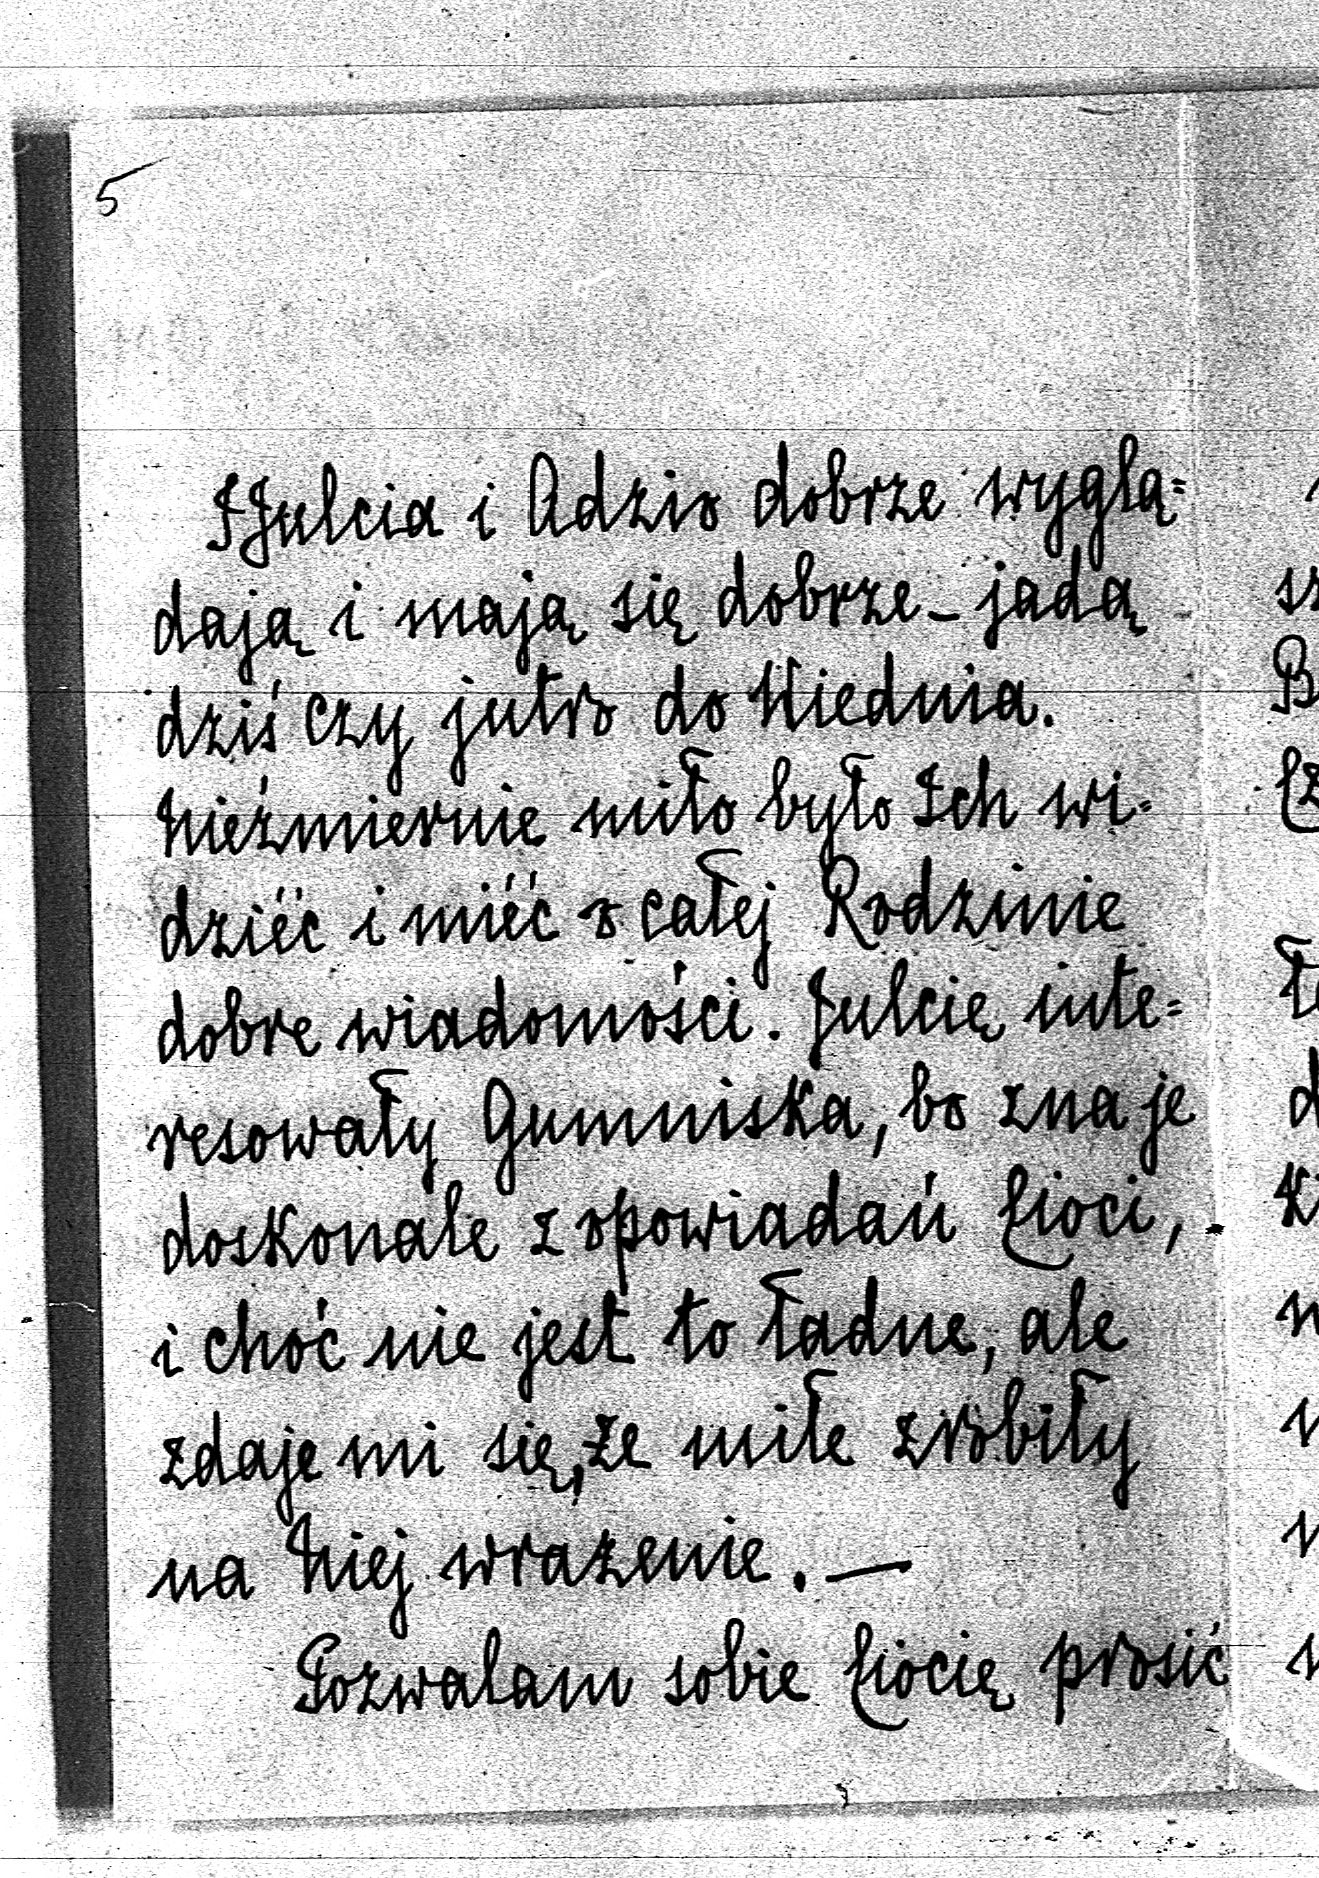 5
I Julcia i Adzio dobrze wyglą=
dają i mają się dobrze – jadą
dziś czy jutro do Wiednia.
Nieźmiernie miło było Ich wi-
dziéć i miéć o całej Rodzinie
dobre wiadomości. Julcię inte=
resowały Gumniska, bo zna je
doskonale z opowiadań Cioci,
i choć nie jest to ładne, ale
zdaje mi się, że miłe zrobiły
na Niej wrażenie. —
Pozwalam sobie Ciocię prosić